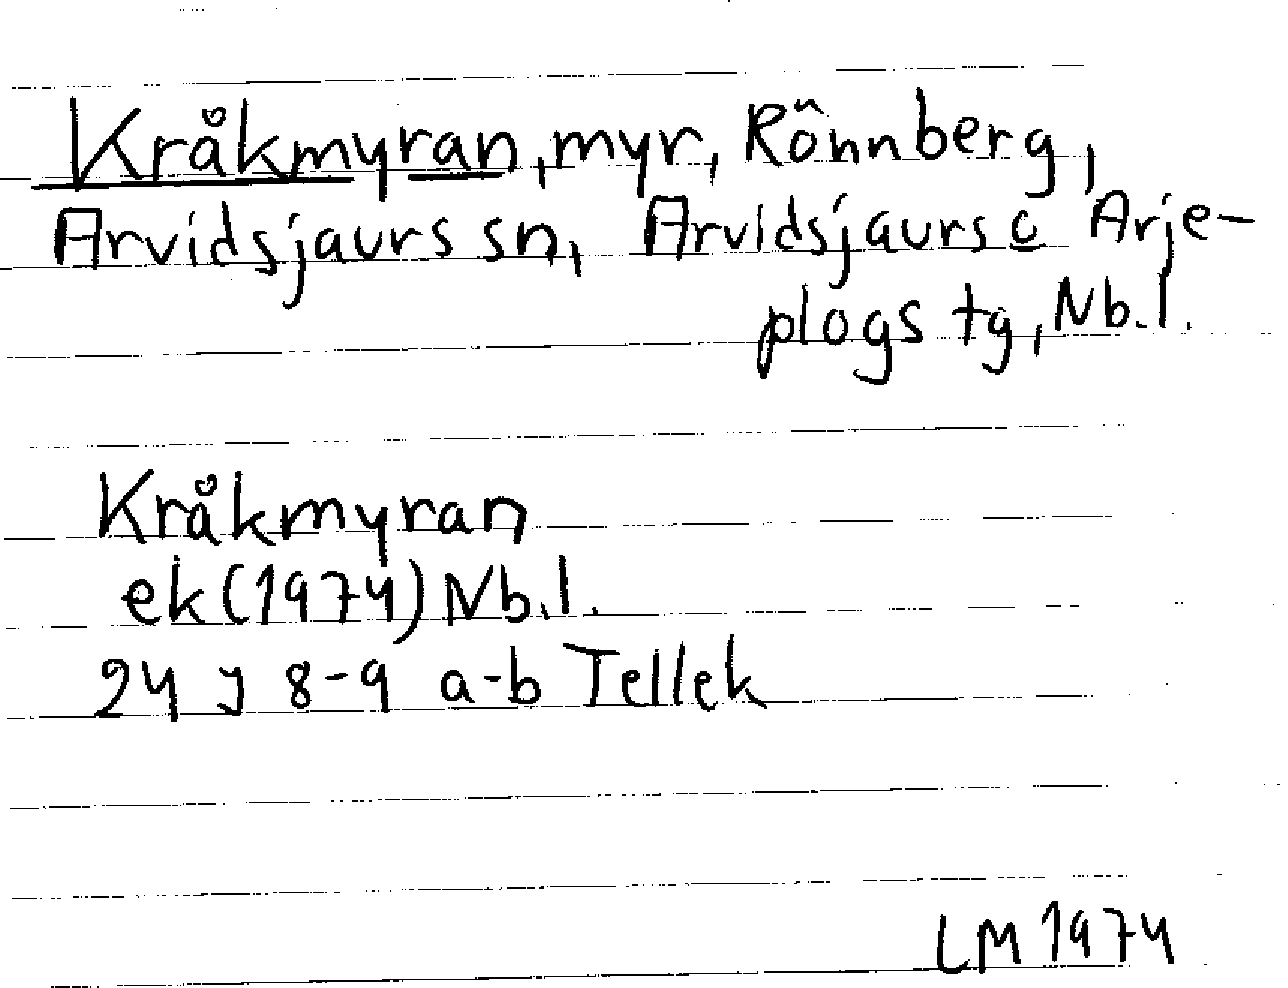 Kråkmyran, myr, Rönnberg,
Arvidsjaurs sn, Arvidsjaurs o Arje-
plogs tg, Nb.l.
Kråkmyran
ek(1974) Nb.l.
24 J 8-9 a-b Tellek
LM 1974